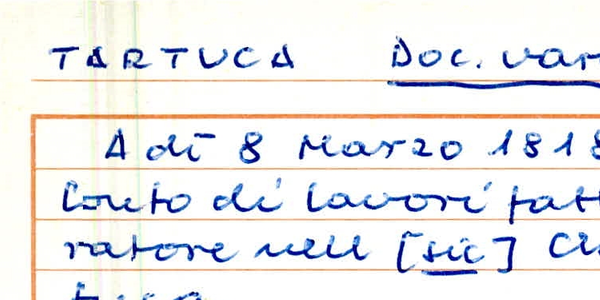 TARTUCA Doc. var
A dì 8 Marzo 1818
Conto di lavori fatt
ratore nell [sic] Ch